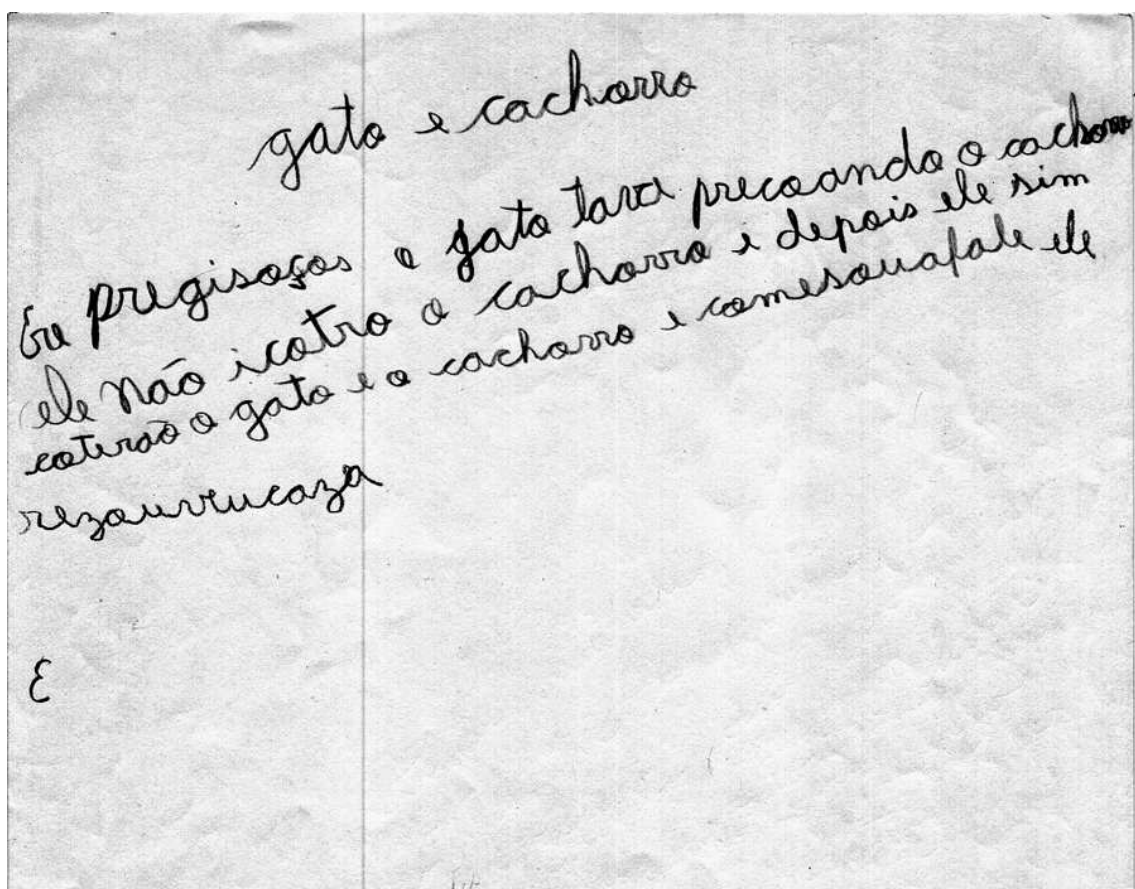 gato e cachorro
Eu pregisoços o gato tava precoando o cachorro
ele não icotro o cachorro e depois ele sim
coterão o gato e o cachorro e comesouafale ele
rezouvrucaza
E